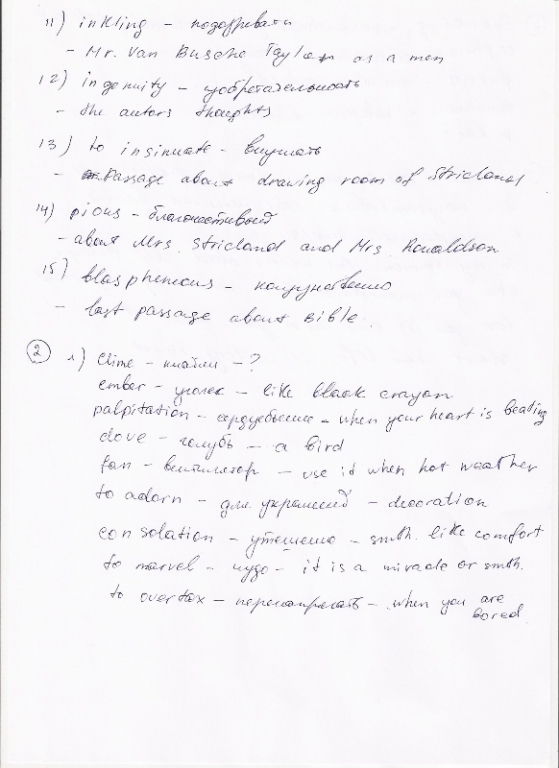 11) inkling – подозревать
- Mr. Van Busche Taylor as a men
12) ingenuity – изобретательность
- the autors thoughts
13) to insinuate – внушать
- Passage about drawing room of Stricland
14) pious – благочестивый
- about Mrs. Stricland and Mrs Ronaldson
15) blasphemous –
- last passage about Bible.
2 1) Clime – климат – ?
ember – уголек – like black crayon
palpitation – сердцебиение – when your heart is beating
dove – голубь – a bird
fan – вентилятор – use it when hot weather
to adorn – для украшений – decoration
consolation – утешение – smth. like comfort
to marvel – чудо – it is a miracle or smth.
to overtax – перенапрягать – when you are
bored.